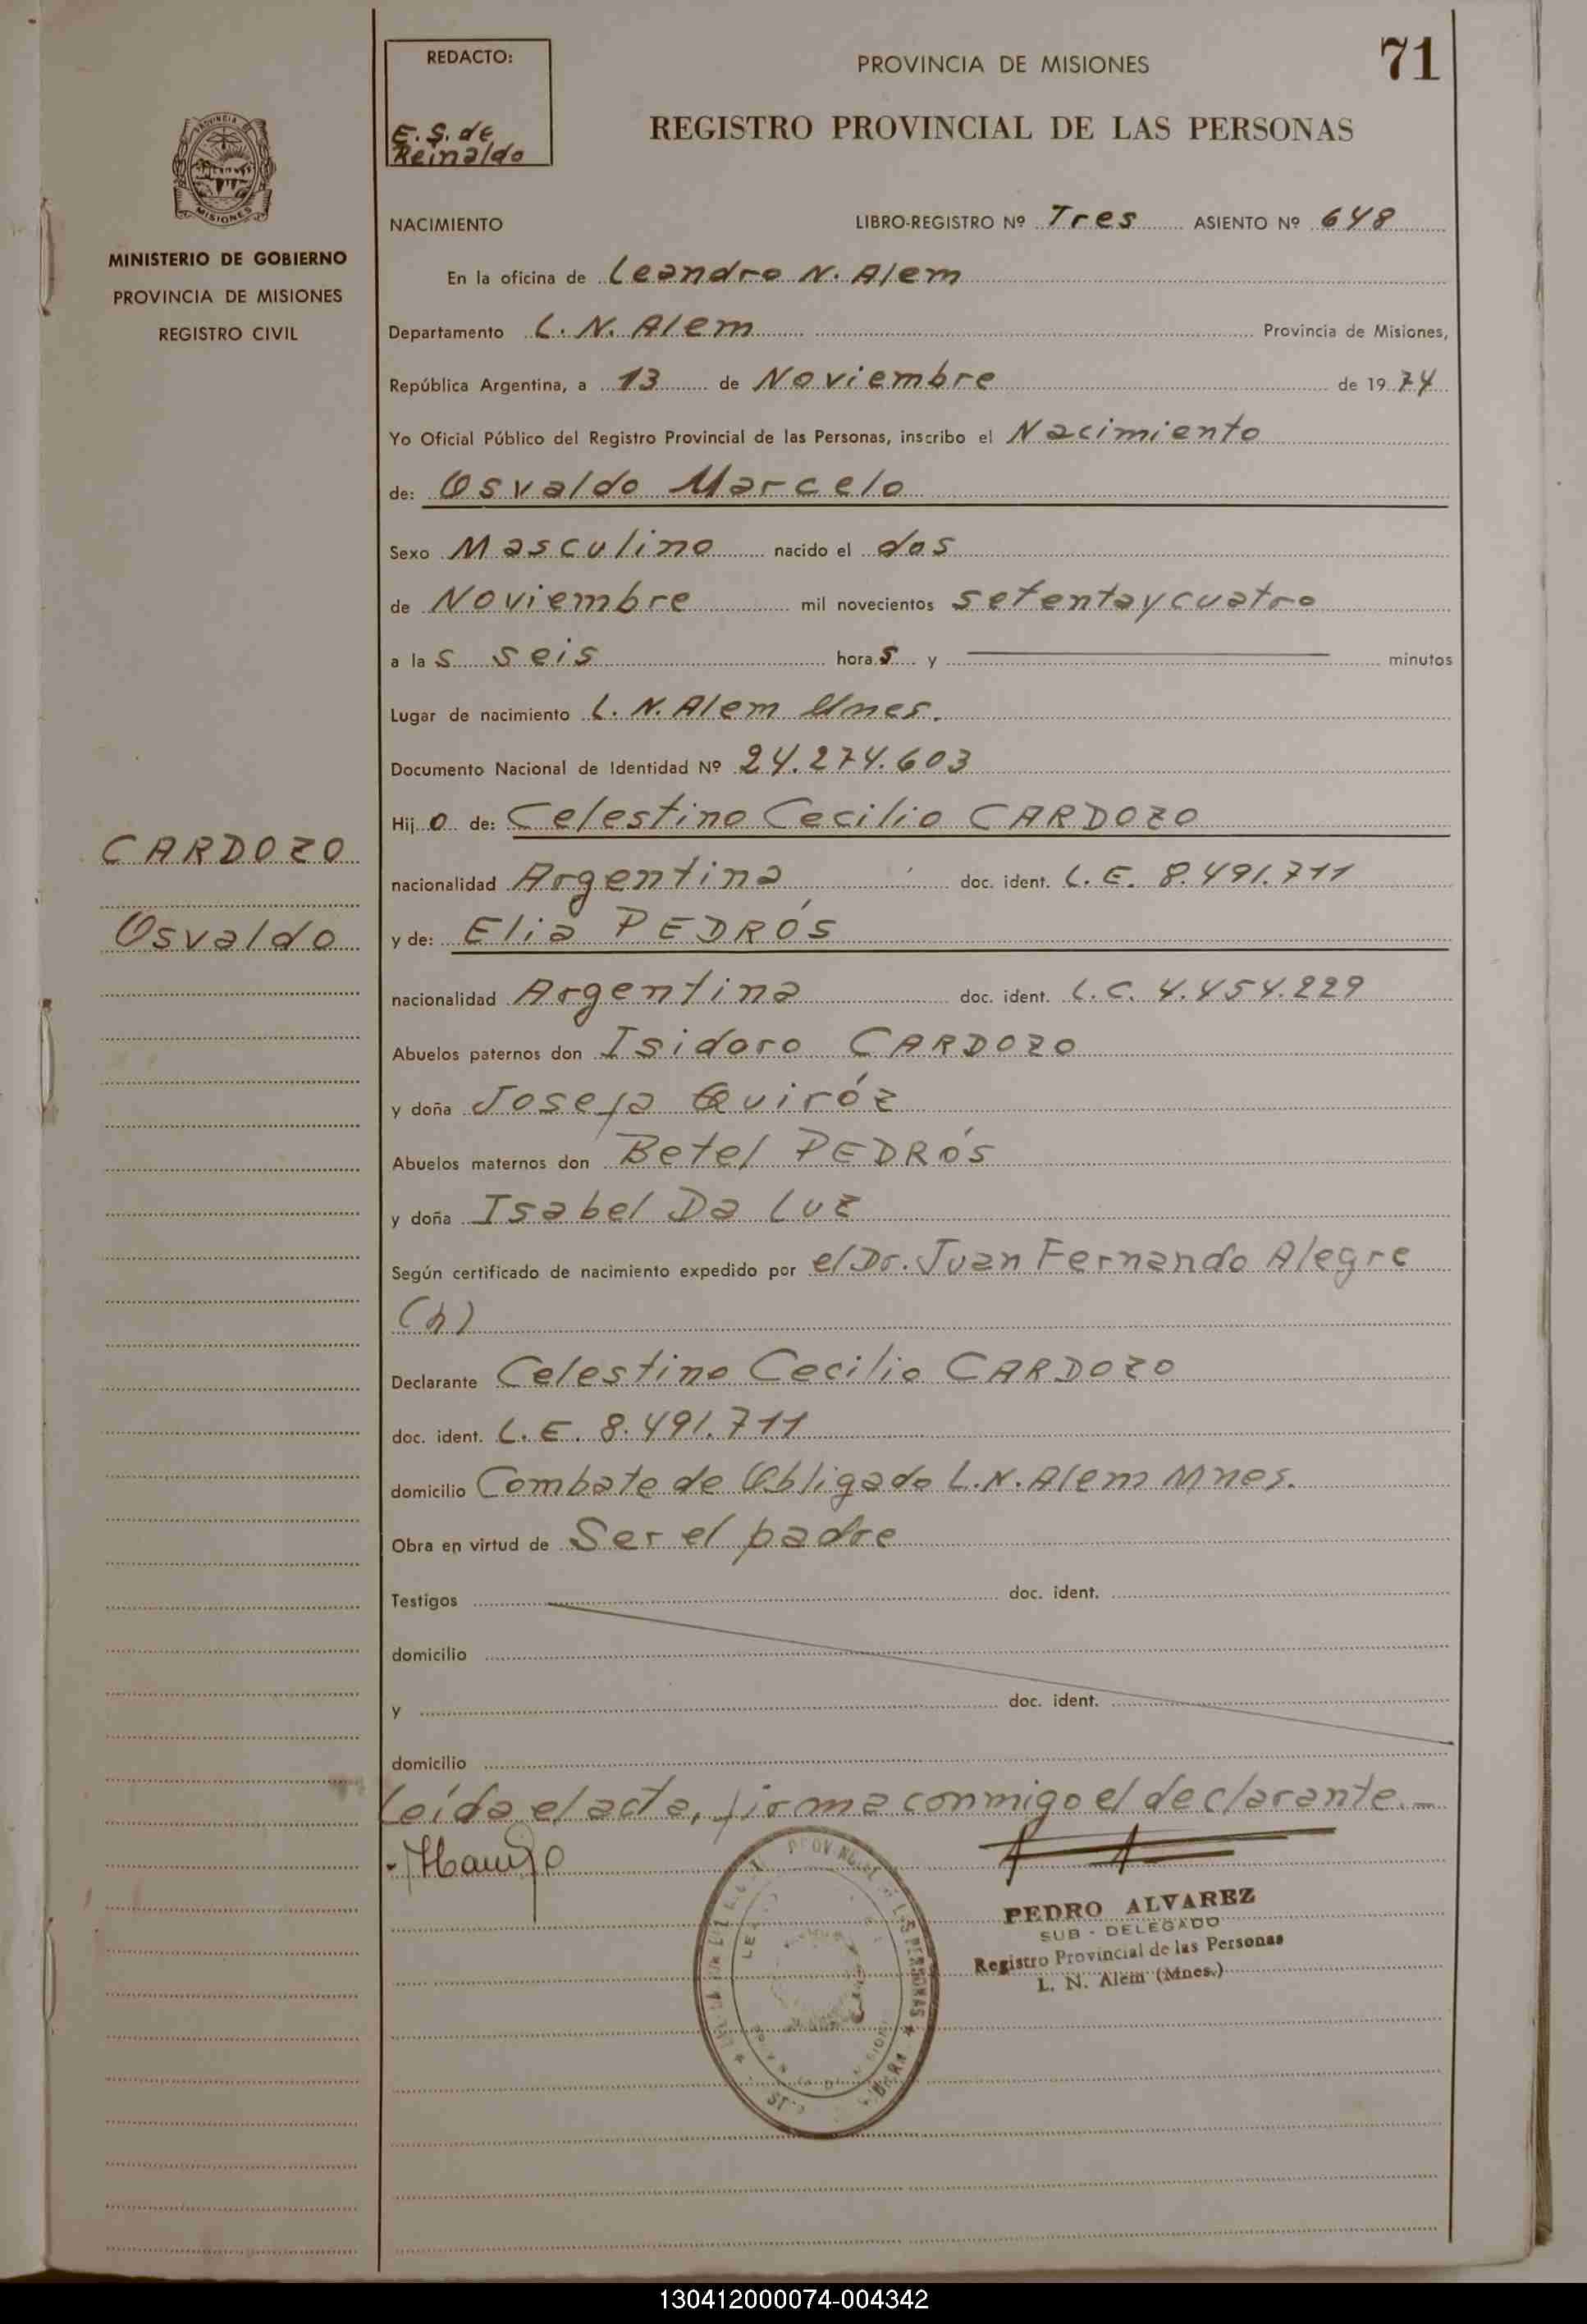 REDACTO:
E. S. de
Reinaldo
PROVINCIA DE MISIONES
71
REGISTRO PROVINCIAL DE LAS PERSONAS
MINISTERIO DE GOBIERNO
PROVINCIA DE MISIONES
REGISTRO CIVIL
NACIMIENTO LIBRO-REGISTRO Nº Tres ASIENTO Nº 648
En la oficina de Leandro N. Alem
Departamento L. N. Alem Provincia de Misiones,
República Argentina, a 13 de Noviembre de 1974
Yo Oficial Público del Registro Provincial de las Personas, inscribo el Nacimiento
de: Osvaldo Marcelo
Sexo Masculino nacido el dos
de Noviembre mil novecientos setenta y cuatro
a las seis horas y minutos
Lugar de nacimiento L. N. Alem Mnes.
Documento Nacional de Identidad Nº 24.274.603
Hijo de: Celestino Cecilio CARDOZO
CARDOZO
Osvaldo
nacionalidad Argentina doc. ident. L. E. 8.491.711
y de: Elia PEDRÓS
nacionalidad Argentina doc. ident. L. C. 4.454.229
Abuelos paternos don Isidoro CARDOZO
y doña Josefa Quiróz
Abuelos maternos don Betel PEDRÓS
y doña Isabel Da Luz
Según certificado de nacimiento expedido por el Dr. Juan Fernando Alegre
(h)
Declarante Celestino Cecilio CARDOZO
doc. ident. L. E. 8.491.711
domicilio Combate de Obligado L. N. Alem Mnes.
Obra en virtud de Ser el padre
Testigos doc. ident.
domicilio
y doc. ident.
domicilio
Leída el acta, firma conmigo el declarante.-
PEDRO ALVAREZ
SUB - DELEGADO
Registro Provincial de las Personas
L. N. Alem (Mnes.)
130412000074-004342